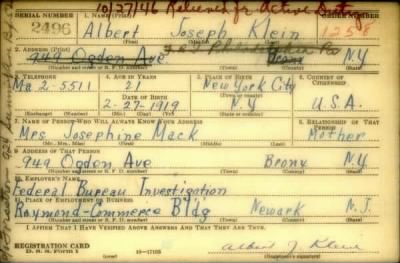 10/27/46 Relieved fr Active Duty
SERIAL NUMBER 1. NAME (Print) ORDER NUMBER
2496 Albert Joseph Klein 1258
(First) (Middle) (Last)
2. ADDRESS (Print)
949 Ogden Ave Bronx N.Y.
(Number and street or R. F. D. number) (Town) (County) (State)
3. TELEPHONE 4. AGE IN YEARS 5. PLACE OF BIRTH 6. COUNTRY OF CITIZENSHIP
21 New York City
Me 2-5511 DATE OF BIRTH (Town or county)
2-27-1919 N.Y. U.S.A.
(Exchange) (Number) (Mo.) (Day) (Yr.) (State or country)
7. NAME OF PERSON WHO WILL ALWAYS KNOW YOUR ADDRESS 8. RELATIONSHIP OF THAT PERSON
Mrs Josephine Mack Mother
(Mr., Mrs., Miss) (First) (Middle) (Last)
9. ADDRESS OF THAT PERSON
949 Ogden Ave Bronx N.Y.
(Number and street or R. F. D. number) (Town) (County) (State)
10. EMPLOYER'S NAME
Federal Bureau Investigation
11. PLACE OF EMPLOYMENT OR BUSINESS
Raymond-Commerce Bldg Newark N.J.
(Number and street or R. F. D. number) (Town) (County) (State)
I AFFIRM THAT I HAVE VERIFIED ABOVE ANSWERS AND THAT THEY ARE TRUE.
REGISTRATION CARD
D. S. S. FORM 1 (over) 16-17105 Albert J. Klein
(Registrant's signature)